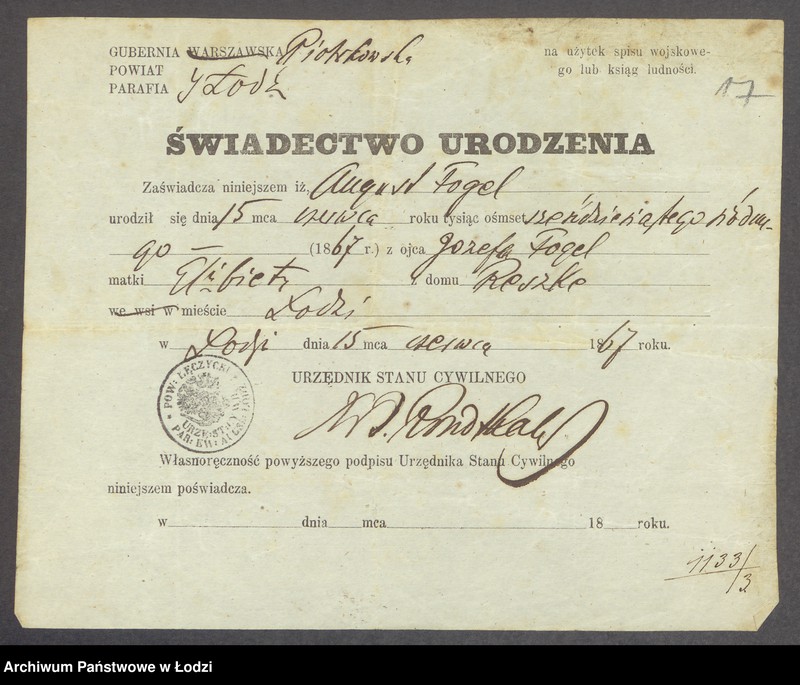 GUBERNIA WARSZAWSKA Piotrkowska
POWIAT
PARAFIA Łodź
na użytek spisu wojskowe-
go lub ksiąg ludności.
17
ŚWIADECTWO URODZENIA
Zaświadcza niniejszem iż, August Fogel
urodził się dnia 15 mca czerwca roku tysiąc ośmset sześdziesiątego siódme-
go — (1867 r.) z ojca Józefa Fogel
matki Elżbiety z domu Reszke
we wsi w mieście Łodzi
w Łodzi dnia 15 mca czerwca 1867 roku.
URZĘDNIK STANU CYWILNEGO
POW: ŁĘCZYCKI
URZ: ST: CYW:
PAR: EW: AUGS:
Rondthaler
Własnoręczność powyższego podpisu Urzędnika Stanu Cywilnego
niniejszem poświadcza.
w dnia mca 18 roku.
1133/3
Archiwum Państwowe w Łodzi